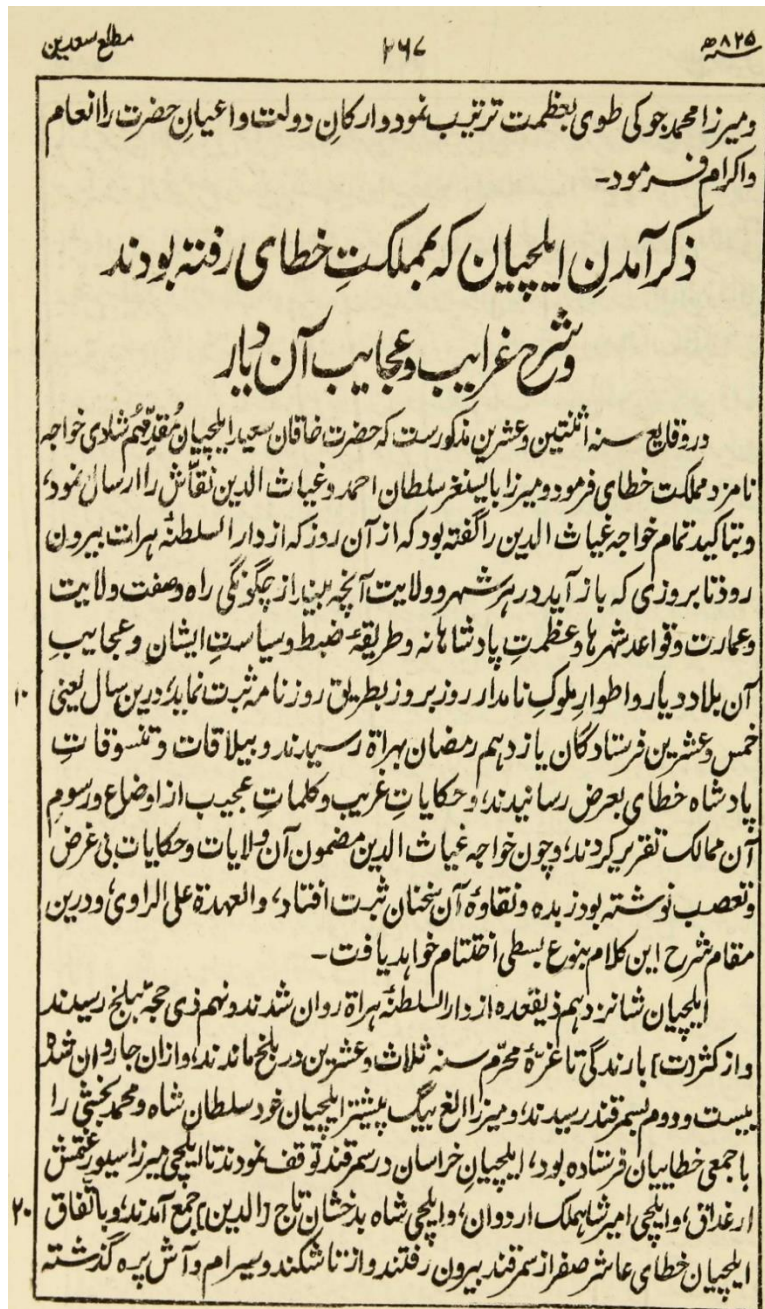 سنه ۸۲۵ھ ۲۶۷ مطلع سعدین
ومیرزا محمد جوکی طوی بعظمت ترتیب نمود وارکانِ دولت واعیانِ حضرت را انعام
واکرام فرمود۔
ذکر آمدنِ ایلچیان که بمملکتِ خطای رفته بودند
وشرح غرایب وعجایب آن دیار
در وقایع سنه اثنتین وعشرین مذکورست که حضرت خاقان سعید ایلچیان مُقدّمهُم شادی خواجه
نامزد مملکت خطای فرمود ومیرزا بایسنغر سلطان احمد وغیاث الدین نقاش را ارسال نمود،
وبتاکید تمام خواجه غیاث الدین را گفته بود که از آن روز که از دار السلطنهٔ هرات بیرون
رود تا بروزی که باز آید در هر شهر وولایت آنچه بیند از چگونگی راه وصفت ولایت
وعمارت وقواعد شهرها وعظمتِ پادشاهانه وطریقهٔ ضبط وسیاستِ ایشان وعجایبِ
آن بلاد ودیار واطوارِ ملوکِ نامدار روز بروز بطریق روزنامه ثبت نماید، درین سال یعنی ۱۰
خمس وعشرین فرستادگان یازدهم رمضان بهراة رسیدند وبیلاقات وتنسوقاتِ
پادشاه خطای بعرض رسانیدند، وحکایاتِ غریب وکلماتِ عجیب از اوضاع ورسومِ
آن ممالک تقریر کردند، وچون خواجه غیاث الدین مضمون آن ولایات وحکایات بی غرض
وتعصب نوشته بود زبده ونقاوهٔ آن سخنان ثبت افتاد، والعهدة علی الراوی، ودرین
مقام شرح این کلام بنوع بسطی اختتام خواهد یافت۔
ایلچیان شانزدهم ذیقعده از دار السلطنهٔ هراة روان شدند ونهم ذی حجه ببلخ رسیدند
واز کثر[ت] بارندگی تا غرّهٔ محرّم سنه ثلاث وعشرین در بلخ ماندند، وازان جا روان شده
بیست ودوم بسمرقند رسیدند، ومیرزا الغ بیگ پیشتر ایلچیان خود سلطان شاه ومحمد بخشی را
با جمعی خطاییان فرستاده بود، ایلچیانِ خراسان در سمرقند توقف نمودند تا ایلچی میرزا سیورغتمش
ارغداق، وایلچی امیر شاهملک اردوان، وایلچی شاه بدخشان تاج [الدین] جمع آمدند، وباتفاق ۲۰
ایلچیان خطای عاشر صفر از سمرقند بیرون رفتند واز تاشکند وسیرام وآش پره گذشته